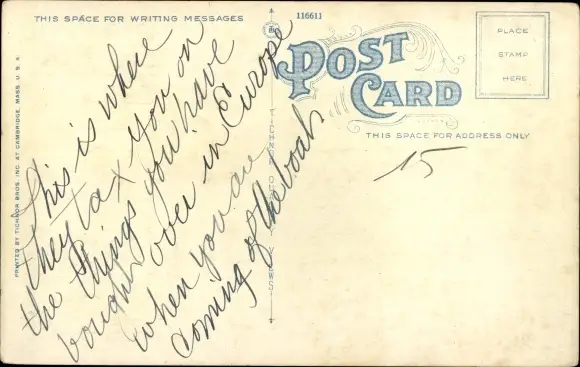 THIS SPACE FOR WRITING MESSAGES
116611
POST
CARD
PLACE
STAMP
HERE
THIS SPACE FOR ADDRESS ONLY
15
This is where
they tax you on
the things you have
bought over in Europe
when you are
coming of the boat
PRINTED BY TICHNOR BROS. INC. AT CAMBRIDGE, MASS. U. S. A.
TICHNOR QUALITY VIEWS